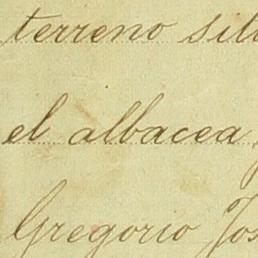 terreno sit
el albacea
Gregorio Jos